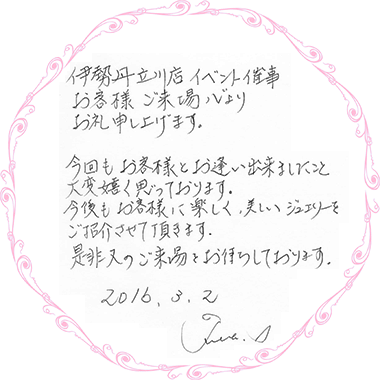 伊勢丹立川店 イベント催事
お客様 ご来場 心より
お礼申し上げます。
今回も お客様と お逢い出来ましたこと
大変嬉しく思っております。
今後も お客様に 楽しく、美しい ジュエリーを
ご紹介させて頂きます。
是非又のご来場をお待ちしております。
2016. 3. 2